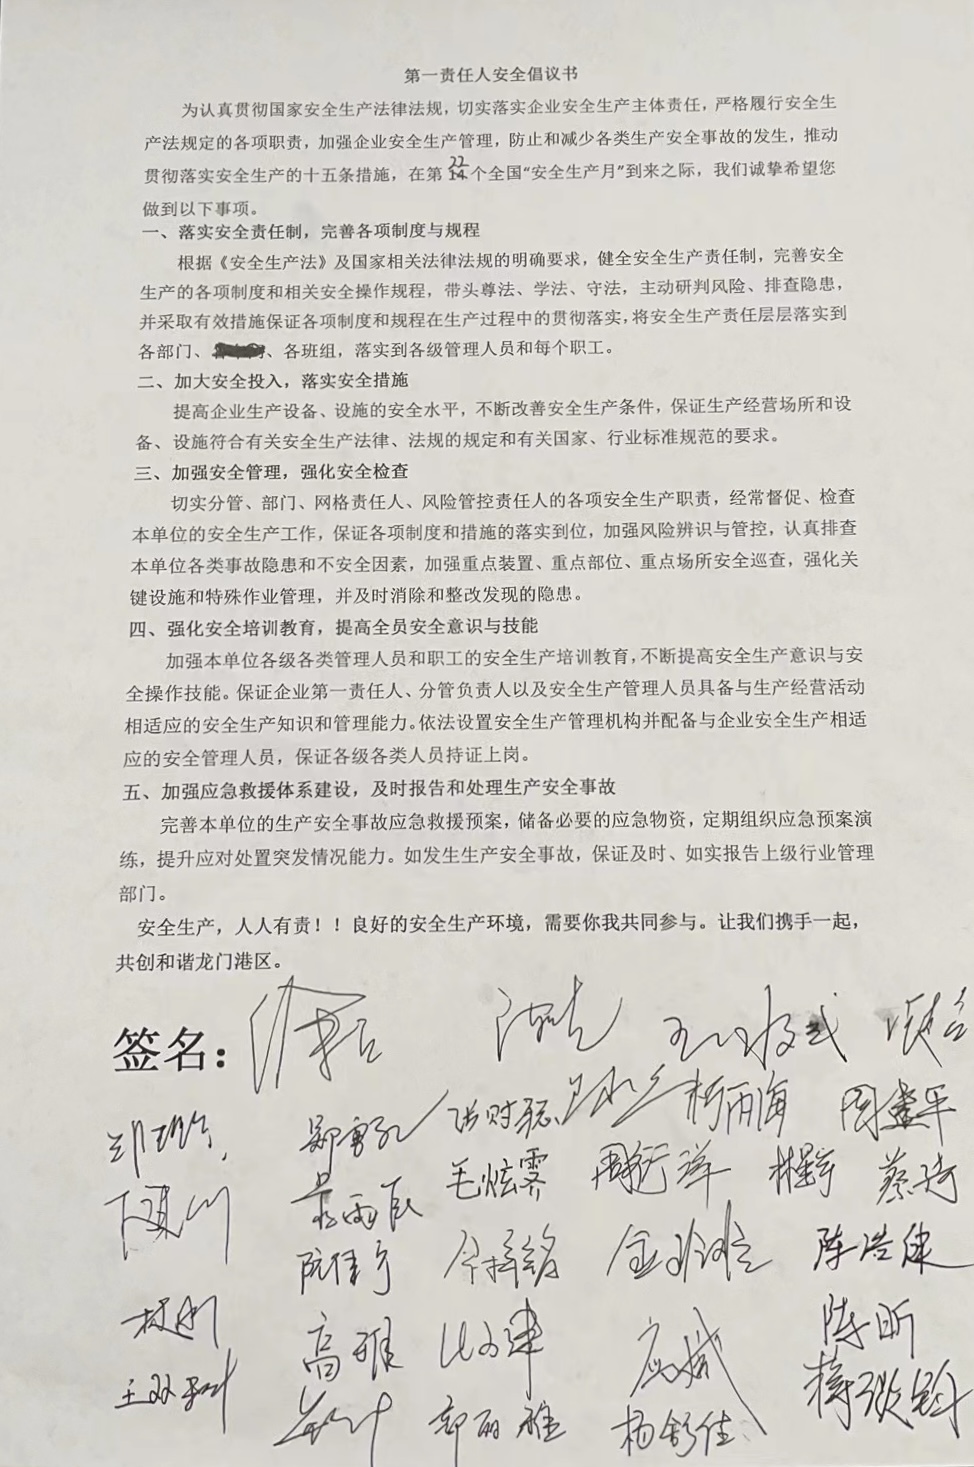 第一责任人安全倡议书
为认真贯彻国家安全生产法律法规，切实落实企业安全生产主体责任，严格履行安全生
产法规定的各项职责，加强企业安全生产管理，防止和减少各类生产安全事故的发生，推动
贯彻落实安全生产的十五条措施，在第22个全国“安全生产月”到来之际，我们诚挚希望您
做到以下事项。
一、落实安全责任制，完善各项制度与规程
根据《安全生产法》及国家相关法律法规的明确要求，健全安全生产责任制，完善安全
生产的各项制度和相关安全操作规程，带头尊法、学法、守法，主动研判风险、排查隐患，
并采取有效措施保证各项制度和规程在生产过程中的贯彻落实，将安全生产责任层层落实到
各部门、、各班组，落实到各级管理人员和每个职工。
二、加大安全投入，落实安全措施
提高企业生产设备、设施的安全水平，不断改善安全生产条件，保证生产经营场所和设
备、设施符合有关安全生产法律、法规的规定和有关国家、行业标准规范的要求。
三、加强安全管理，强化安全检查
切实分管、部门、网格责任人、风险管控责任人的各项安全生产职责，经常督促、检查
本单位的安全生产工作，保证各项制度和措施的落实到位，加强风险辨识与管控，认真排查
本单位各类事故隐患和不安全因素，加强重点装置、重点部位、重点场所安全巡查，强化关
键设施和特殊作业管理，并及时消除和整改发现的隐患。
四、强化安全培训教育，提高全员安全意识与技能
加强本单位各级各类管理人员和职工的安全生产培训教育，不断提高安全生产意识与安
全操作技能。保证企业第一责任人、分管负责人以及安全生产管理人员具备与生产经营活动
相适应的安全生产知识和管理能力。依法设置安全生产管理机构并配备与企业安全生产相适
应的安全管理人员，保证各级各类人员持证上岗。
五、加强应急救援体系建设，及时报告和处理生产安全事故
完善本单位的生产安全事故应急救援预案，储备必要的应急物资，定期组织应急预案演
练，提升应对处置突发情况能力。如发生生产安全事故，保证及时、如实报告上级行业管理
部门。
安全生产，人人有责！！良好的安全生产环境，需要你我共同参与。让我们携手一起，
共创和谐龙门港区。
签名：
柯雨海 周盛平
毛炫霁 蔡琦
阮佳宁 陈浩健
高雅 应斌 陈昕
郑丽雅 杨舒佳